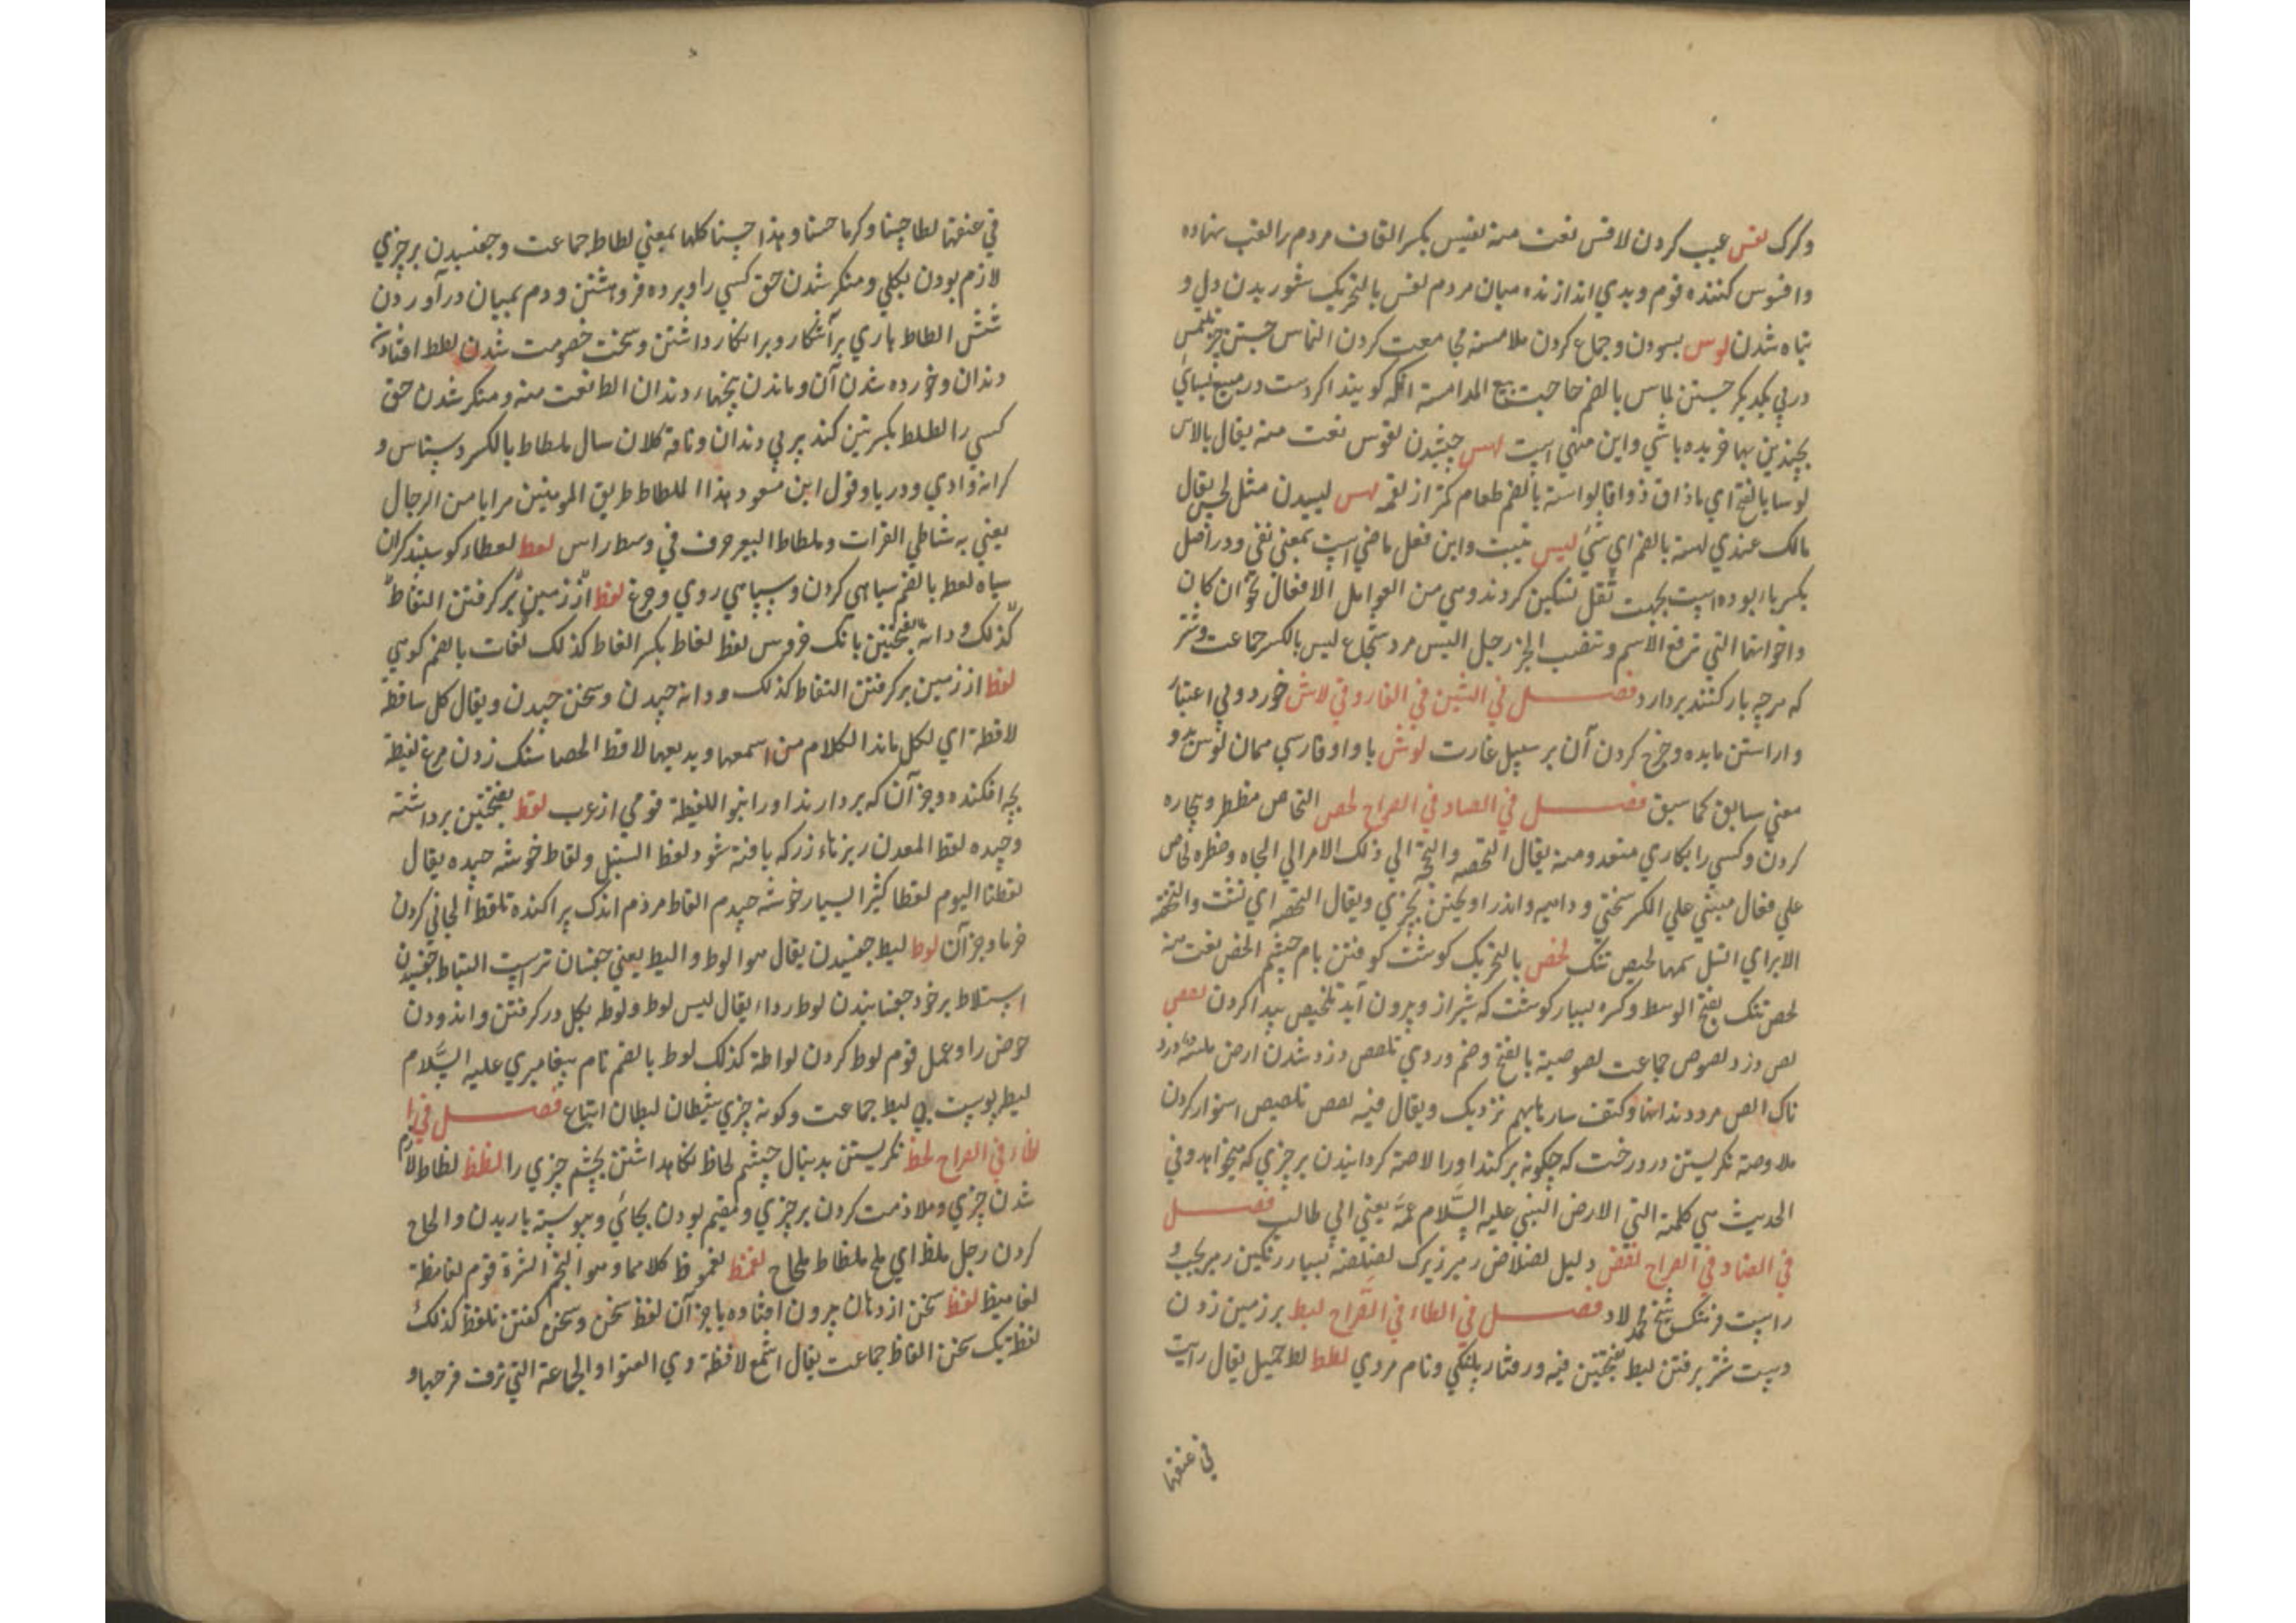 وکرک لقس عیب کردن لاقس نعت منه لقیس بکسر القاف مردم را لقب نهاده
وافسوس کننده قوم وبدی اندازنده میان مردم لقس بالتحریک شوریدن دل و
تباه شدن لوس بسودن وجماع کردن ملامسه مجامعت کردن التماس جستن چیز تلمس
در پی یکدیگر جستن لماس بالضم حاجت بیع الملامسة انکه کویند اکر دست در مبیع بسائی
بچندین بها خریده باشی واین منهی است لوس چشیدن لؤوس نعت منه یقال بالاس
لوسا بالفتح ای ماذاق ذواقا لواسة بالضم طعام کمتر از لقمه لهس لیسیدن مثل لحس یقال
مالک عندی لهسة بالضم ای شئ لیس نیست واین فعل ماضی است بمعنی نفی ودر اصل
بکسر یاء بوده است بجهت ثقل تسکین کردند وهی من العوامل الافعال نحو ان کان
واخواتها التی ترفع الاسم وتنصب الخبر رجل الیس مرد شجاع لیس بالکسر جماعت وشتر
که هرچه بار کنند بردارد فصل فی الشین فی الفاروقی لاش خورد وبی اعتبار
واراستن مایده وخرج کردن آن بر سبیل غارت لوش با واو فارسی همان لوس بدو
معنی سابق کما سبق فصل فی الصاد فی الصراح لحص التحاص مضطر وبیچاره
کردن وکسی را بکاری متعد ومنه یقال التحصه والتجه الی ذلک الامر ای الجاه وضطره لحاص
علی فعال مبنی علی الکسر سختی وداهیه واندر اویختن بچیزی ویقال التحصه ای نشت والتحصه
الابرای انسل سمها لحیص تنک لخص بالتحریک کوشت کوفتن بام چشم الخص نعت منه
لخص تنک بفتح الوسط وکسره بسیار کوشت که شیر از وبیرون آید تلخیص پیدا کردن لصص
لص دزد لصوص جماعت لصوصیة بالفتح وضم ودزدی تلصص دزد شدن ارض ملصة دزد
ناک الص مرد دندانها وکتف سار بابهم نزدیک ویقال فیه لصص تلصیص استوار کردن
ملاوصة نکریستن در درخت که چکونه برکند اورا لاصة کردانیدن بر چیزی که میخواهد وفی
الحدیث هی کلمة التی الارض النبی علیه السلام عمه یعنی ابی طالب فصل
فی الضاد فی الصراح لضض دلیل لضلاض رهبر زیرک لضلضة بسیار نکرستن رهبر بچپ و
راست فرهنک شیخ محمد لاد فصل فی الطاء فی الصراح لبط بر زمین زدن
دست شتر برفتن لبط بفتحتین فیه ورفتار پلنکی ونام مردی لطط لط حمیل یقال رایت
فی عنقها
فی عنقها لطا حسنا وکرما حسنا وهذا حسنا کلها بمعنی لطاط جماعت وچفسیدن بر چیزی
لازم بودن بکلی ومنکر شدن حق کسی را وپرده فروهشتن ودم بمیان درآوردن
شتر الطاط یاری برآشکار وبر انکار داشتن وسخت خصومت شدن لطط افتادن
دندان وخورده شدن آن وماندن بیخهاء دندان الط نعت منه ومنکر شدن حق
کسی را لطلط بکسرتین کند پیر بی دندان وناقه کلان سال ملطاط بالکسر دستاس و
کرانه وادی ودریا وقول ابن مسعود هذا الملطاط طریق المومنین هرابا من الرجال
یعنی به شاطی الفرات وملطاط البعیر حرف فی وسط راس لعط لعطاء کوسپند کران
سیاه لعط بالضم سیاهی کردن وسپاهی روی وجرغ لقط از زمین برکرفتن التقاط
کذلک ودانه بفتحتین بانک فروس لغط لغاط بکسر الغاط کذلک لغات بالضم کوهی
لقط از زمین برکرفتن التقاط کذلک ودانه چیدن وسخن چیدن ویقال کل ساقطة
لاقطة ای لکل ماندا الکلام من اسمعها ویدیعها لاقط الحصا سنک زدن مرغ لقیطة
بچه افکنده وجز آن که بردارند اورا بنو اللقیطة قومی از عرب لقط بفتحتین برداشته
وچیده لقط المعدن ریزهاء زر که یافته شود لقط السنبل ولقاط خوشه چیده یقال
لقطنا الیوم لقطا کثیرا بسیار خوشه چیدیم القاط مردم اندک پراکنده تلقط الجانی کردن
خرما وجز آن لوط لیط چفسیدن یقال هو الوط والیط یعنی چفسان ترست التیاط چفسیدن
استلاط بر خود چفسانیدن لوط رداء یقال لیس لوط ولوطه بکل در کرفتن واندودن
حوض را وعمل قوم لوط کردن لواطة کذلک لوط بالضم نام پیغامبری علیه السلام
لیط پوست نی لیط جماعت وکونه چیزی شیطان لیطان اتباع فصل فی ا
لظاء فی الصراح لحظ نکریستن بدنبال چشم لحاظ نکاهداشتن بچشم چیزی را لظظ لظاظ لازم
شدن چیزی وملازمت کردن بر چیزی ومقیم بودن بجائی وپیوسته باریدن والحاح
کردن رجل ملظ ای ملح ملظاظ ملحاح لعمظ لعموظ کلاهما وهو النهم الشره قوم لعامظة
لعامیظ لفظ سخن از دهان بیرون افتاده یا جز آن لفظ سخن وسخن کفتن تلفظ کذلک
لفظ یک سخن الفاظ جماعت یقال اسمع لافظة وهی العنز او الجماعة التی تزقت فرخها و